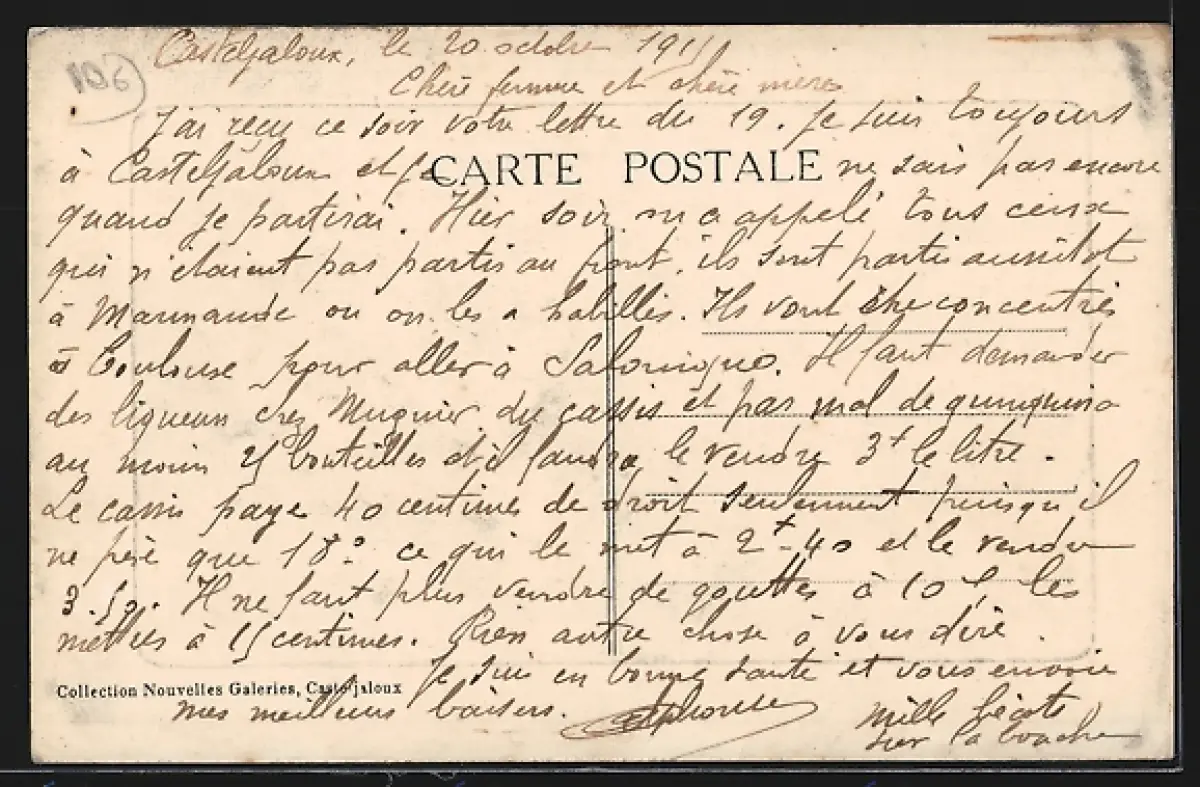 106
Casteljaloux, le 20 octobre 191
Chère femme et chère mère
J'ai reçu ce soir votre lettre du 19. Je suis toujours
à Casteljaloux et je ne sais pas encore
CARTE POSTALE
quand je partirai. Hier soir on a appelé tous ceux
qui n'étaient pas partis au front, ils sont partis aussitot
à Marmande ou on les a habillés. Ils vont être concentrés
à Toulouse pour aller à Salonique. Il faut demander
des liqueurs chez Mugnier du cassis et pas mal de quinquina
au moins 25 bouteilles et il faudra le vendre 3f le litre.
Le cassis paye 40 centimes de droit seulement puisqu'il
ne pèse que 18° ce qui le met à 2f-40 et le vendre
3.50. Il ne faut plus vendre de gouttes à 10 les
mettres à 15 centimes. Rien autre chose à vous dire.
Je suis en bonne santé et vous envoie
Collection Nouvelles Galeries, Casteljaloux
mes meilleurs baisers. Alphonse
Mille bécots
sur la bouche